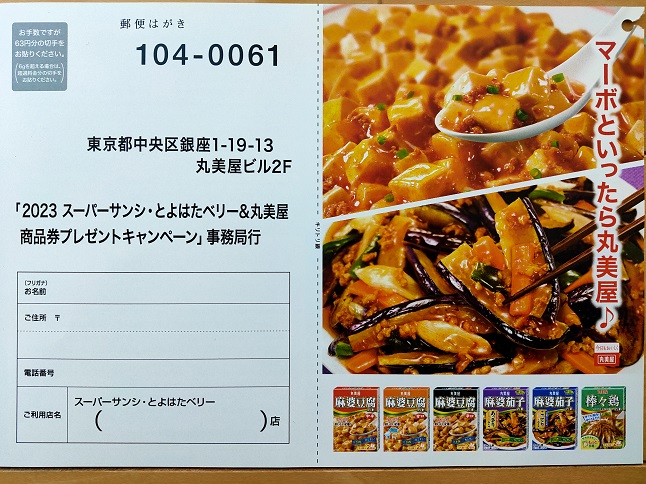 お手数ですが
63円分の切手を
お貼りください。
郵便はがき
104-0061
東京都中央区銀座1-19-13
丸美屋ビル2F
「2023 スーパーサンシ・とよはたベリー&丸美屋
商品券プレゼントキャンペーン」事務局行
(フリガナ)
お名前
ご住所 〒
電話番号
ご利用店名
スーパーサンシ・とよはたベリー
( )店
キリトリ線
マーボといったら丸美屋♪
丸美屋
麻婆豆腐
麻婆豆腐
麻婆豆腐
麻婆茄子
麻婆茄子
棒々鶏